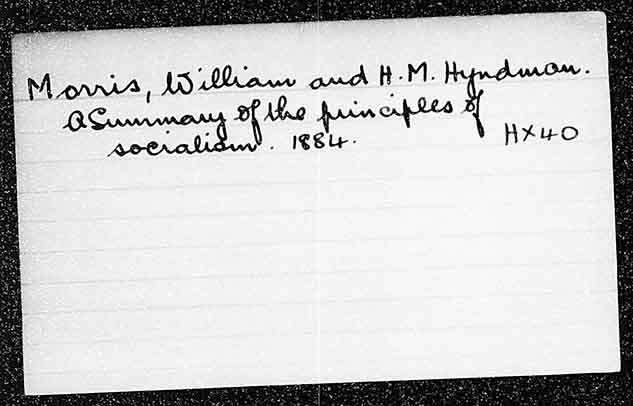 Morris, William and H.M. Hyndman.
A Summary of the principles of
socialism. 1884.
HX40